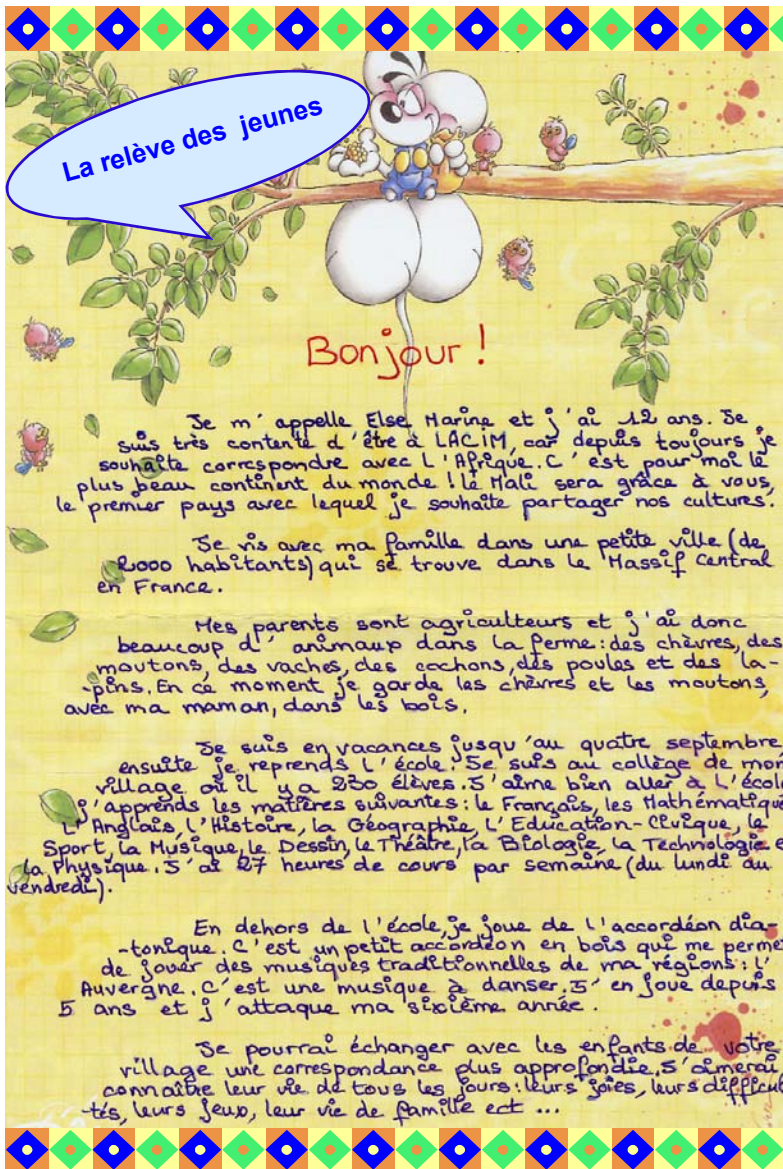 La relève des jeunes
Bonjour !
Je m'appelle Else Marine et j'ai 12 ans. Je
suis très contente d'être à LACIM, car depuis toujours je
souhaite correspondre avec l'Afrique. C'est pour moi le
plus beau continent du monde ! le Mali sera grâce à vous,
le premier pays avec lequel je souhaite partager nos cultures.
Je vis avec ma famille dans une petite ville (de
2000 habitants) qui se trouve dans le Massif Central
en France.
Mes parents sont agriculteurs et j'ai donc
beaucoup d'animaux dans la ferme : des chèvres, des
moutons, des vaches, des cochons, des poules et des la-
-pins. En ce moment je garde les chèvres et les moutons,
avec ma maman, dans les bois.
Je suis en vacances jusqu'au quatre septembre,
ensuite je reprends l'école. Je suis au collège de mon
village où il y a 230 élèves. J'aime bien aller à l'école
j'apprends les matières suivantes : le Français, les Mathématique
L'Anglais, l'Histoire, la Géographie, l'Education-Civique, le
Sport, la Musique, le Dessin, le Théâtre, la Biologie, la Technologie e
la Physique. J'ai 27 heures de cours par semaine (du lundi au
vendredi).
En dehors de l'école, je joue de l'accordéon dia-
-tonique. C'est un petit accordéon en bois qui me perme
de jouer des musiques traditionnelles de ma régions : l'
Auvergne. C'est une musique à danser. J'en joue depuis
5 ans et j'attaque ma sixième année.
Je pourrai échanger avec les enfants de votre
village une correspondance plus approfondie. J'aimerai
connaître leur vie de tous les jours : leurs joies, leurs difficul
-tés, leurs jeux, leur vie de famille ect ...